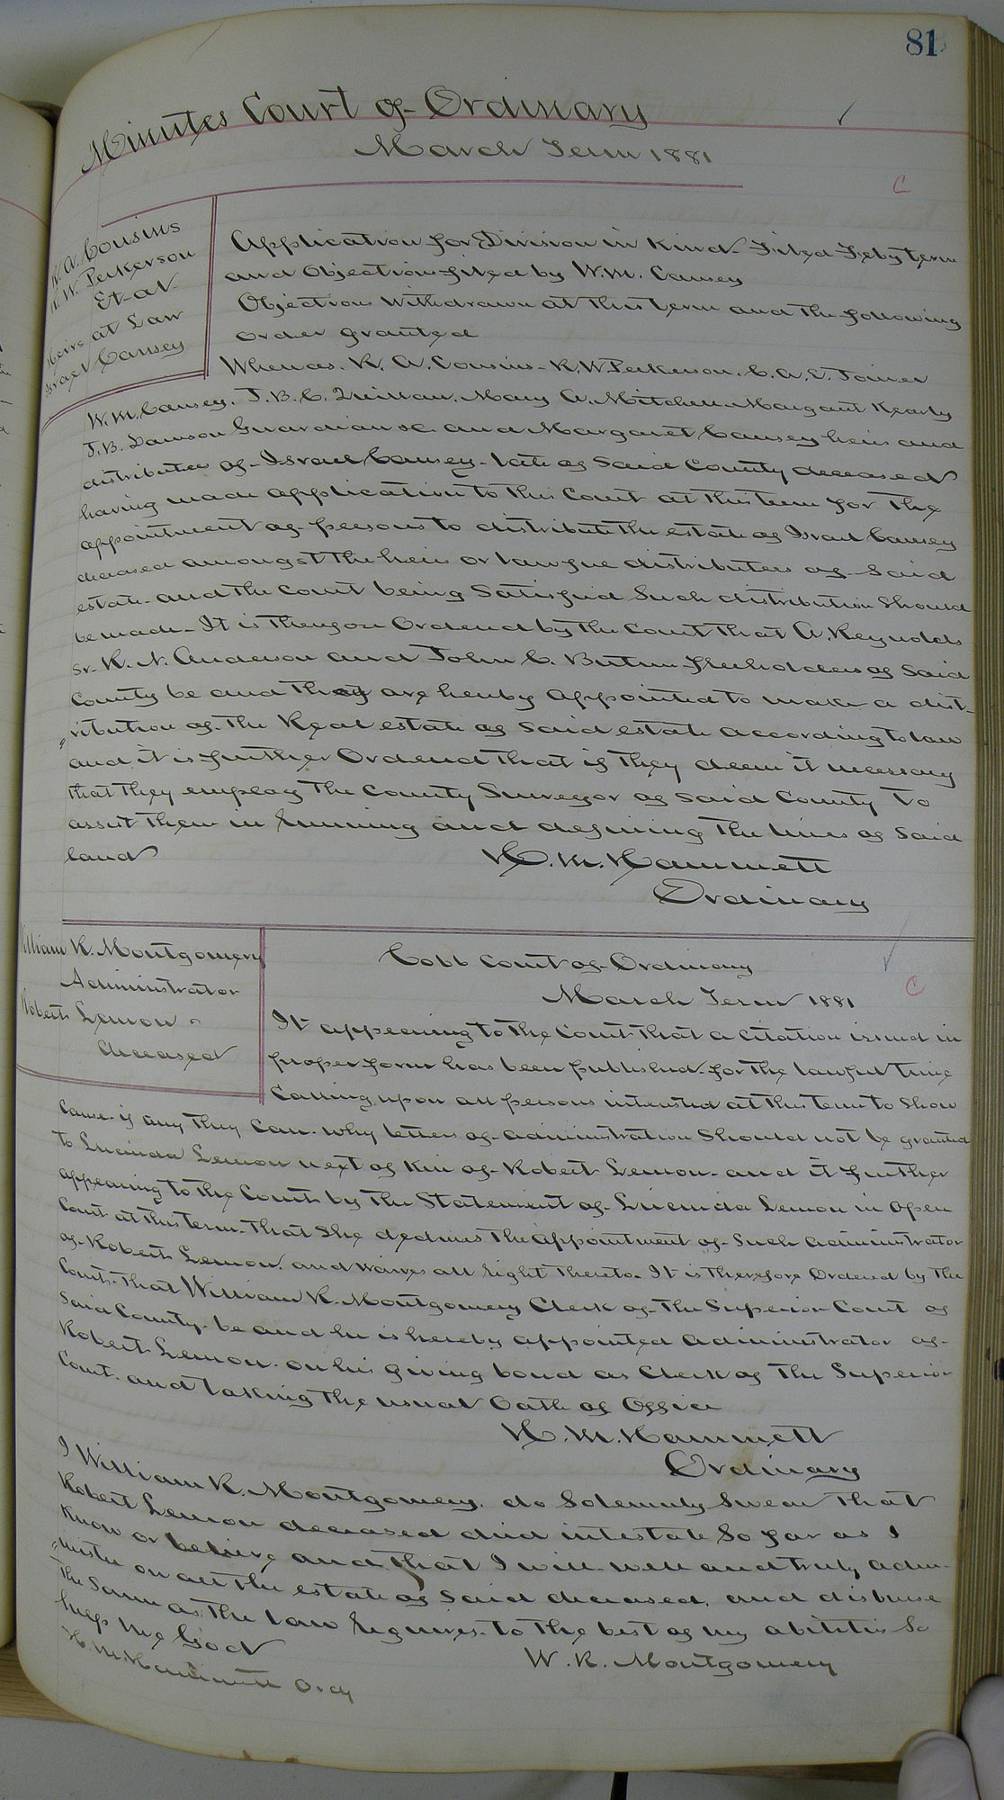 81
Minutes Court of Ordinary
March Term 1881
C
R. A. Cousins
R. W. Perkerson
Et al
Heirs at Law
Israel Causey
Application for Division in Kind Filed Feby term
and Objection filed by W.M. Causey
Objections withdrawn at this term and the following
order granted
Whereas. R. A. Cousins - R. W. Perkerson. C. A. E. Joiner
W. M. Causey. J. B. C. Quillian. Mary A. Mitchell. Margaret Kearly
J. B. Dawson Guardian &c. and Margaret Causey heirs and
distributees of Israel Causey late of said County deceased
having made application to this Court at this term for the
appointment of persons to distribute the estate of Israel Causey
deceased amongst the heirs or lawful distributees of said
estate. and the Court being Satisfied Such distribution Should
be made - It is therefore Ordered by the Court that A. Reynolds
Sr. R. N. Anderson and John C. freeholders of said
County be and they are hereby appointed to make a dist-
ribution of the Real estate of said estate according to law
and it is further Ordered that if they deem it necessary
that they employ the County Surveyor of said County to
assist them in running and defining the lines of said
land
H. M. Hammett
Ordinary
William R. Montgomery
Administrator
Robert Lemon
deceased
Cobb Court of Ordinary
March Term 1881
C
It appearing to the Court that a citation issued in
proper form has been published for the lawful time
Calling upon all persons interested at this term to show
Cause if any they can. why letters of administration should not be granted
to Lucinda Lemon next of Kin of Robert Lemon - and it further
appearing to the Court by the Statement of Lucinda Lemon in open
Court at this term. That She declines the appointment of such administrator
of Robert Lemon. and waives all right thereto. It is therefore Ordered by the
Court. That William R. Montgomery Clerk of the Superior Court of
Said County. be and he is hereby appointed administrator of
Robert Lemon. on his giving bond as Clerk of the Superior
Court. and taking the usual Oath of Office
H. M. Hammett
Ordinary
I William R. Montgomery. do Solemnly Swear that
Robert Lemon deceased died intestate So far as I
Know or believe and that I will well and truly admi-
nister on all the estate of said deceased. and disburse
the Same as the law requires. to the best of my abilities So
help me God
W. R. Montgomery
H. M. Hammett Ordy